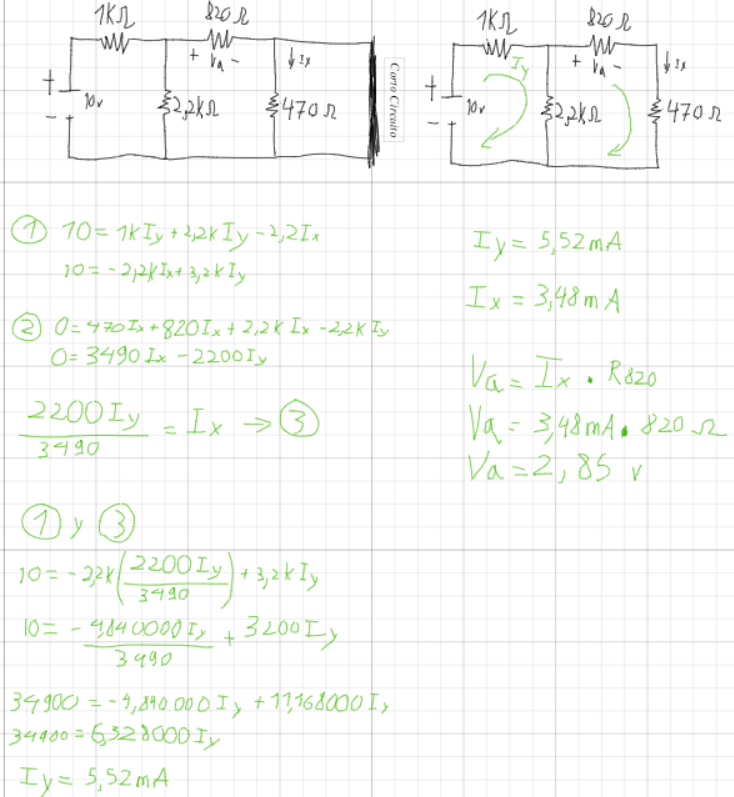 1KΩ
820Ω
+ Va -
↓Ix
+
10v
-
2,2KΩ
470Ω
Corto Circuito
1KΩ
820Ω
Iy
+ Va -
↓Ix
+
10v
-
2,2KΩ
470Ω
① 10 = 1KIy + 2,2KIy - 2,2Ix
10 = -2,2KIx + 3,2KIy
② 0 = 470Ix + 820Ix + 2,2KIx - 2,2KIy
0 = 3490Ix - 2200Iy
2200Iy / 3490 = Ix → ③
① y ③
10 = -2,2K(2200Iy / 3490) + 3,2KIy
10 = - 4840000Iy / 3490 + 3200Iy
34900 = -4,840.000Iy + 11,168000Iy
34900 = 6,328000Iy
Iy = 5,52mA
Iy = 5,52mA
Ix = 3,48mA
Va = Ix · R820
Va = 3,48mA · 820Ω
Va = 2,85 v